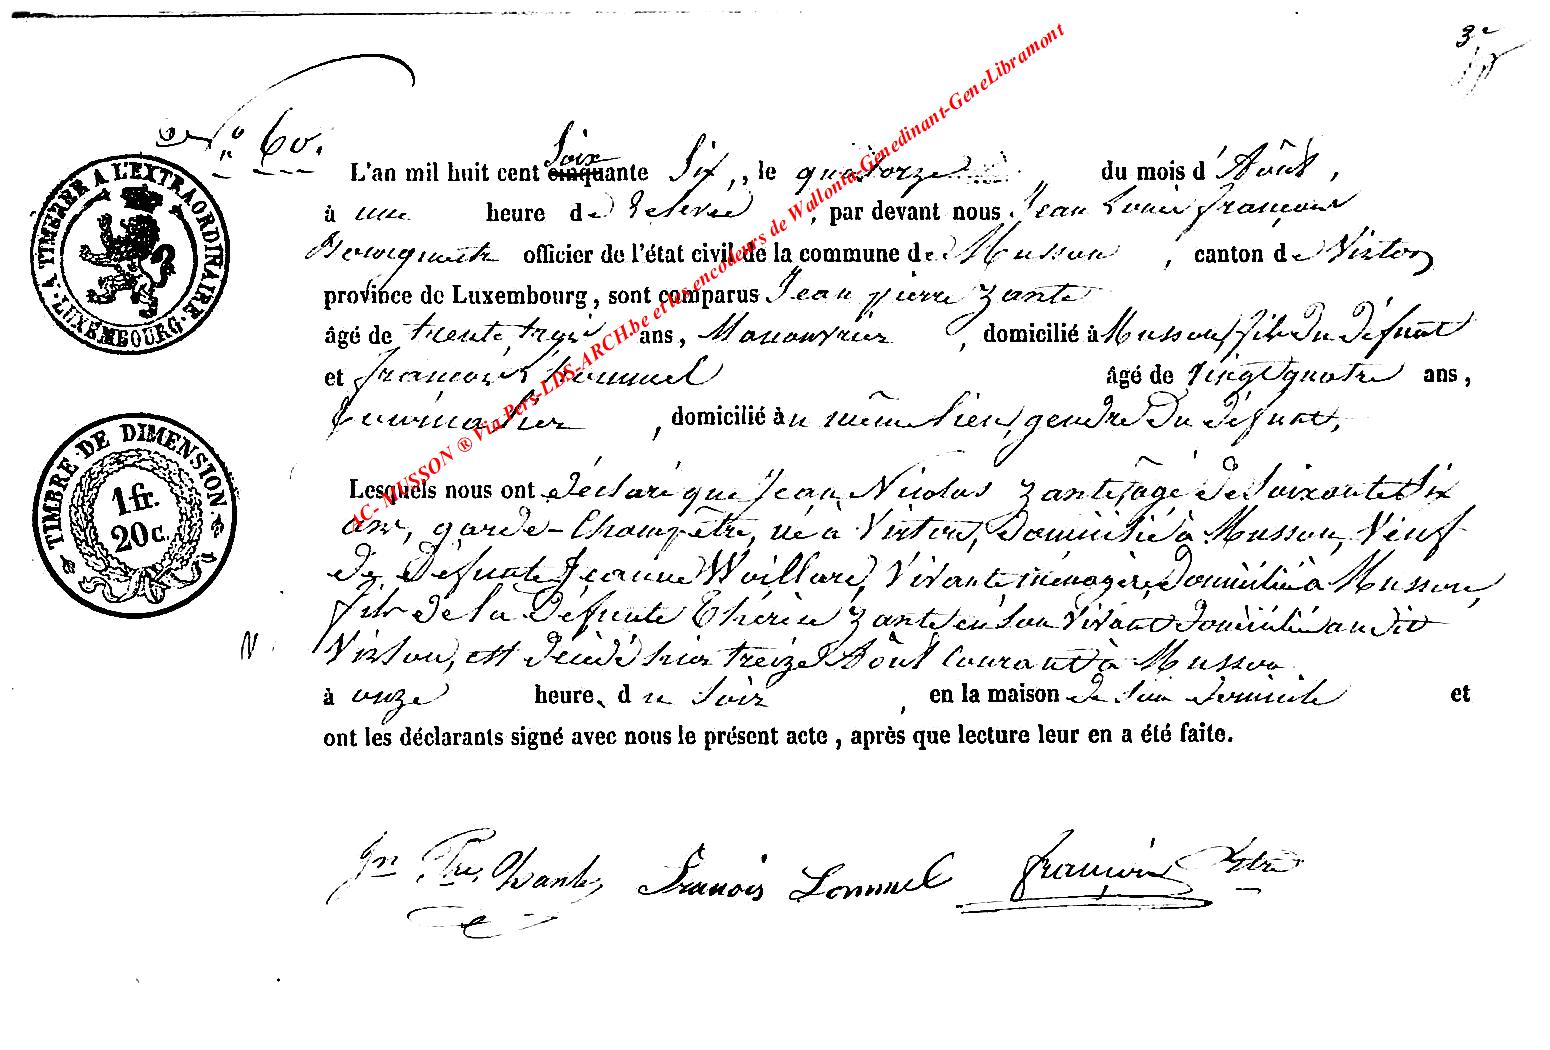 3e
No 60.
A TIMBRER A L'EXTRAORDINAIRE. LUXEMBOURG.
TIMBRE DE DIMENSION
1 fr.
20 c.
AC- MUSSON ® Via Pers-LDS-ARCH.be et les encodeurs de Wallonia-Genedinant-GeneLibramont
L'an mil huit cent cinquante Soix Six, le quatorze du mois d'Août,
à une heure de relevée, par devant nous Jean Louis François
officier de l'état civil de la commune de Musson, canton de Virton
province de Luxembourg, sont comparus Jean pierre Zante
âgé de trente trois ans, Manouvrier, domicilié à Musson, fils du défunt
et françois Lommel âgé de vingt quatre ans,
, domicilié au même lieu, gendre du défunt,
Lesquels nous ont déclaré que Jean Nicolas Zante, âgé de soixante six
ans, garde-Champêtre, né à Virton, Domicilié à Musson, Veuf
de défunte Jeanne Woillard, vivante ménagère, Domiciliée à Musson,
fils de la défunte Thérèse Zante en son vivant Domiciliée au dit
Virton, est décédé hier treize Août Courant à Musson
à onze heures du soir, en la maison de son domicile et
ont les déclarants signé avec nous le présent acte, après que lecture leur en a été faite.
N.
Jn Pre Zante Francois Lommel françois